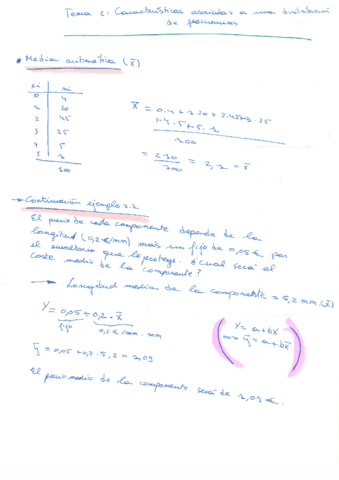 Tema 2: Características asociadas a una distribución
de frecuencias
• Media aritmética (x̄)
xi | ni
0 | 4
1 | 20
2 | 45
3 | 25
4 | 5
5 | 1
100
x̄ = 0·4+1·20+2·45+3·25
+4·5+5·1
100
= 210/100 = 2,1 = x̄
→ Continuación ejemplo 2.2
El precio de cada componente depende de la
longitud (0,2€/mm) más un fijo de 0,05€ por
el envoltorio que lo protege. ¿Cuál será el
coste medio de la componente?
→ Longitud media de la componente = 5,2 mm (x̄)
Y = 0,05 + 0,2 · x̄
fijo 0,2€/mm · mm
ȳ = 0,05 + 0,2 · 5,2 = 1,09
( Y = a + bX
=> ȳ = a + bx̄ )
El precio medio de la componente será de 1,09€.